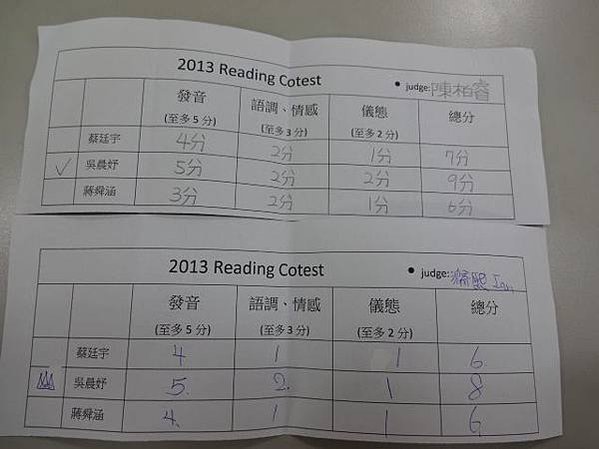 2013 Reading Cotest
● judge: 陳柏睿
發音 語調、情感 儀態 總分
(至多5分) (至多3分) (至多2分)
蔡廷宇 4分 2分 1分 7分
✓ 吳晨妤 5分 2分 2分 9分
蔣舜涵 3分 2分 1分 6分
2013 Reading Cotest
● judge:
發音 語調、情感 儀態 總分
(至多5分) (至多3分) (至多2分)
蔡廷宇 4 1 1 6
吳晨妤 5. 2. 1 8
蔣舜涵 4. 1 1 6